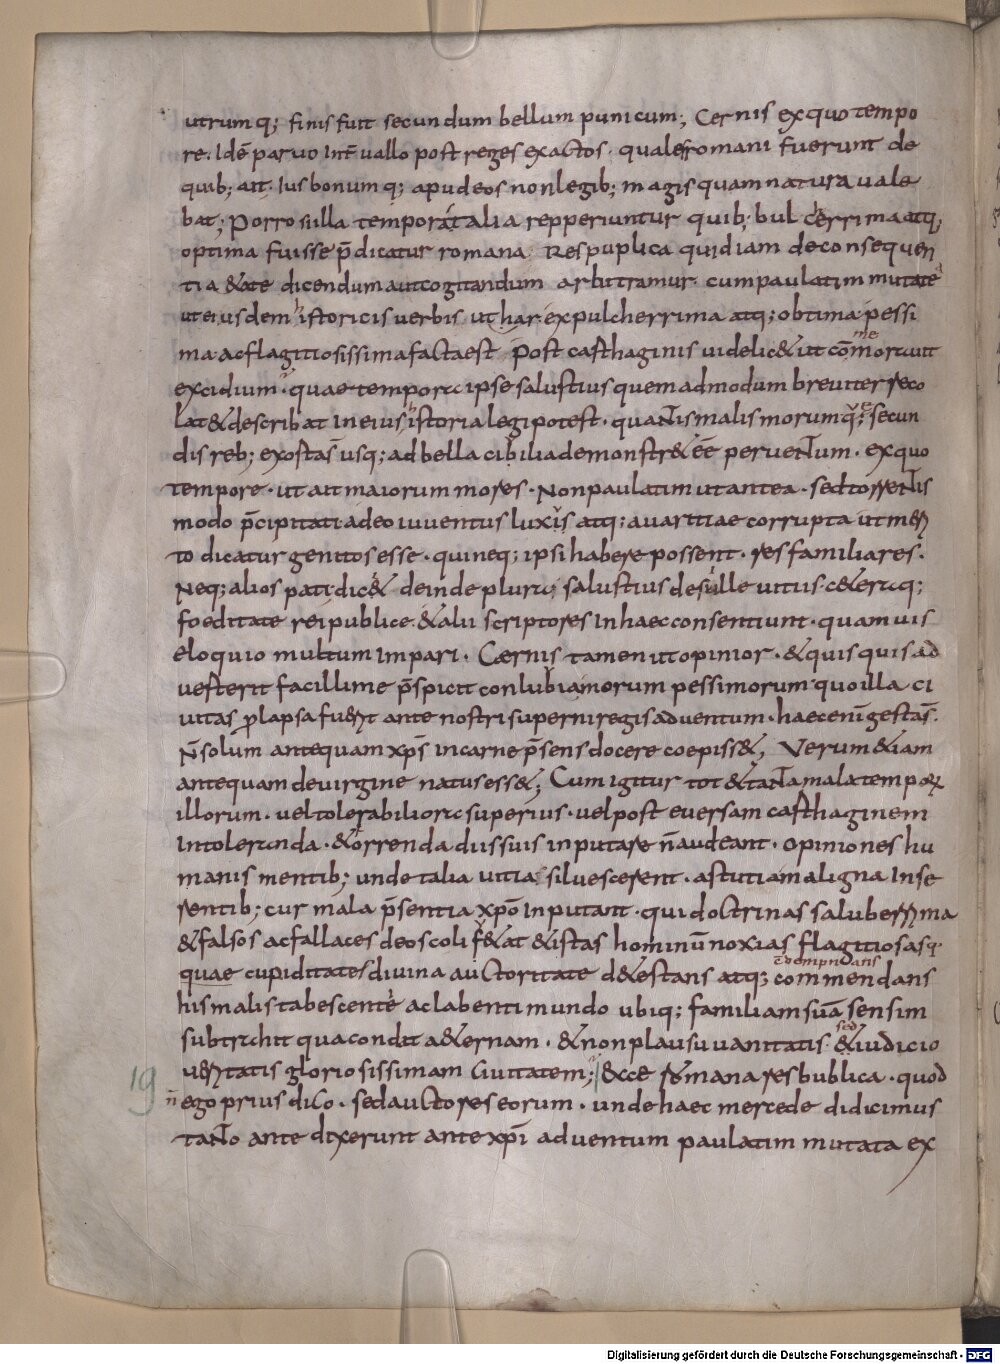 utrumq; finis fuit secundum bellum punicum; Cernis exquo tempo
re. Idē paruo intͤuallo post reges exactos. quales romani fuerunt de
quib; ait. Ius bonumq; apud eos non legib; magis quam natura uale
bat; Porro si illa tempora talia repperiuntur quib; pulcerrima atq;
optima fuisse p̄dicatur romana Respuplica quid iam deconsequen
tia &ate dicendum aut cogitandum arbitramur. cum paulatim mutata
ut eiusdem historicis uerbis uthar. expulcherrima atq; obtima pessi
ma ac flagitiosissima facta est post casthaginis uidelic& ut cōmemorauit
excidium. quae tempora ipse salustius quemadmodum breuiter reco
lat & describat in eius istoria legi potest. quantis malis morum q̄; secun
dis reb; exostas̄ usq; ad bella cibilia demonstr& eē peruentum. exquo
tempore. ut ait maiorum mores. Non paulatim ut antea. sed torrentis
modo p̄cipitati adeo iuuentus luxus atq; auaritiae corrupta ut meri
to dicatur genitos esse. qui neq; ipsi habere possent. res familiares.
Neq; alios pati; dic& deinde plura; salustius de sulle uitiis c&eraq;
foeditate rei publice. & alii scriptores in haec consentiunt. quamuis
eloquio multum impari. Cernis tamen ut opinior. & quisquis ad
uesterit facillime p̄spicit conlubiamorum pessimorum quo illa ci
uitas p̄lapsa fuerit ante nostri superni regis aduentum. haec enī gesta s̄.
N̄ solum antequam xp̄s in carne p̄sens docere coepiss&, Verum &iam
antequam de uirgine natus ess&; Cum igitur tot & tanta mala temporū
illorum. uel tolerabiliora superius. uel post euersam casthaginem
Intoleranda. & orrenda diis suis inputare n̄ audeant. opiniones hu
manis mentib; unde talia uitia siluescerent. astutia maligna inse
rentib; cur mala p̄sentia xp̄o inputant. qui doctrinas saluberrima
& falsos ac fallaces deos coli u&at & istas hominū noxias flagitiosasq;
contempndans
quae cupiditates divina auctoritate d&estans atq; commendans
his malis tabescente ac labenti mundo ubiq; familiam suā sensim
subtrahit qua condit a&ernam. & non plausu uanitatis. sed & iudicio
ueritatis gloriosissimam Ciuitatem; &cce romana res bublica. quod
19
n̄ ego prius dico. sed auctores eorum. unde haec mercede didicimus
tanto ante dixerunt ante xp̄i aduentum paulatim mutata ex
Digitalisierung gefördert durch die Deutsche Forschungsgemeinschaft - DFG